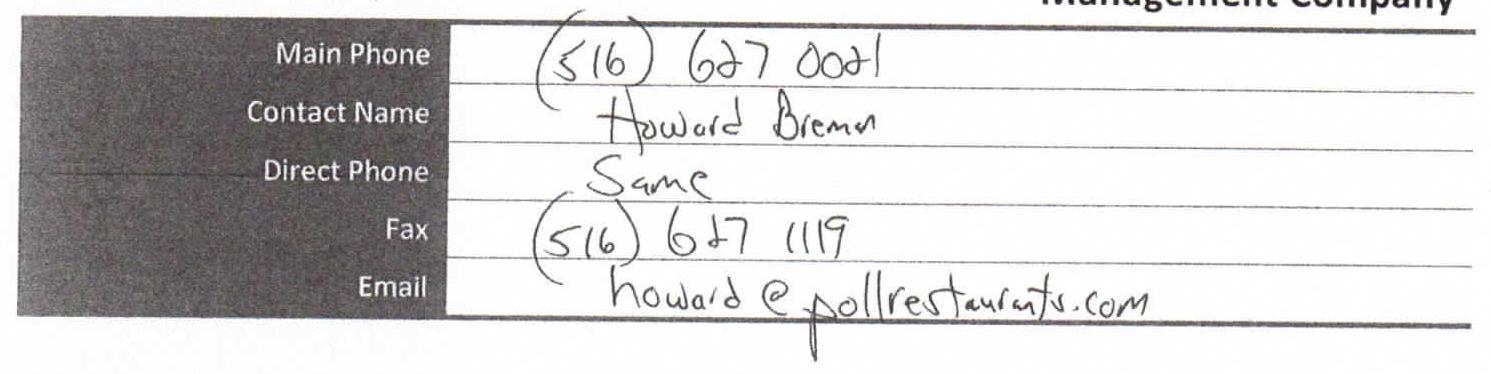 Management Company
Main Phone (516) 627 0021
Contact Name Howard Bremen
Direct Phone Same
Fax (516) 627 1119
Email howard@pollrestaurants.com